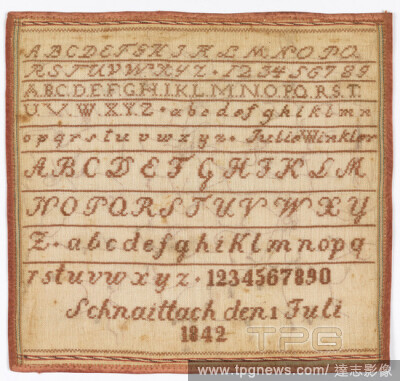 ABCDEFGHIKLMNOPQ
RSTUVWXYZ·123456789
A.B.C.D.E.F.G.H.I.K.L.M.N.O.P.Q.R.S.T.
U.V.W.X.Y.Z·abcdefghiklmn
opqrstuvwxyz·Julie Winkler
ABCDEFGHIKLM
NOPQRSTUVWXY
Z·abcdefghiklmnopq
rstuvwxyz·1234567890
Schnaittach den 1 Juli
1842
TPG
www.tpgnews.com / 達志影像